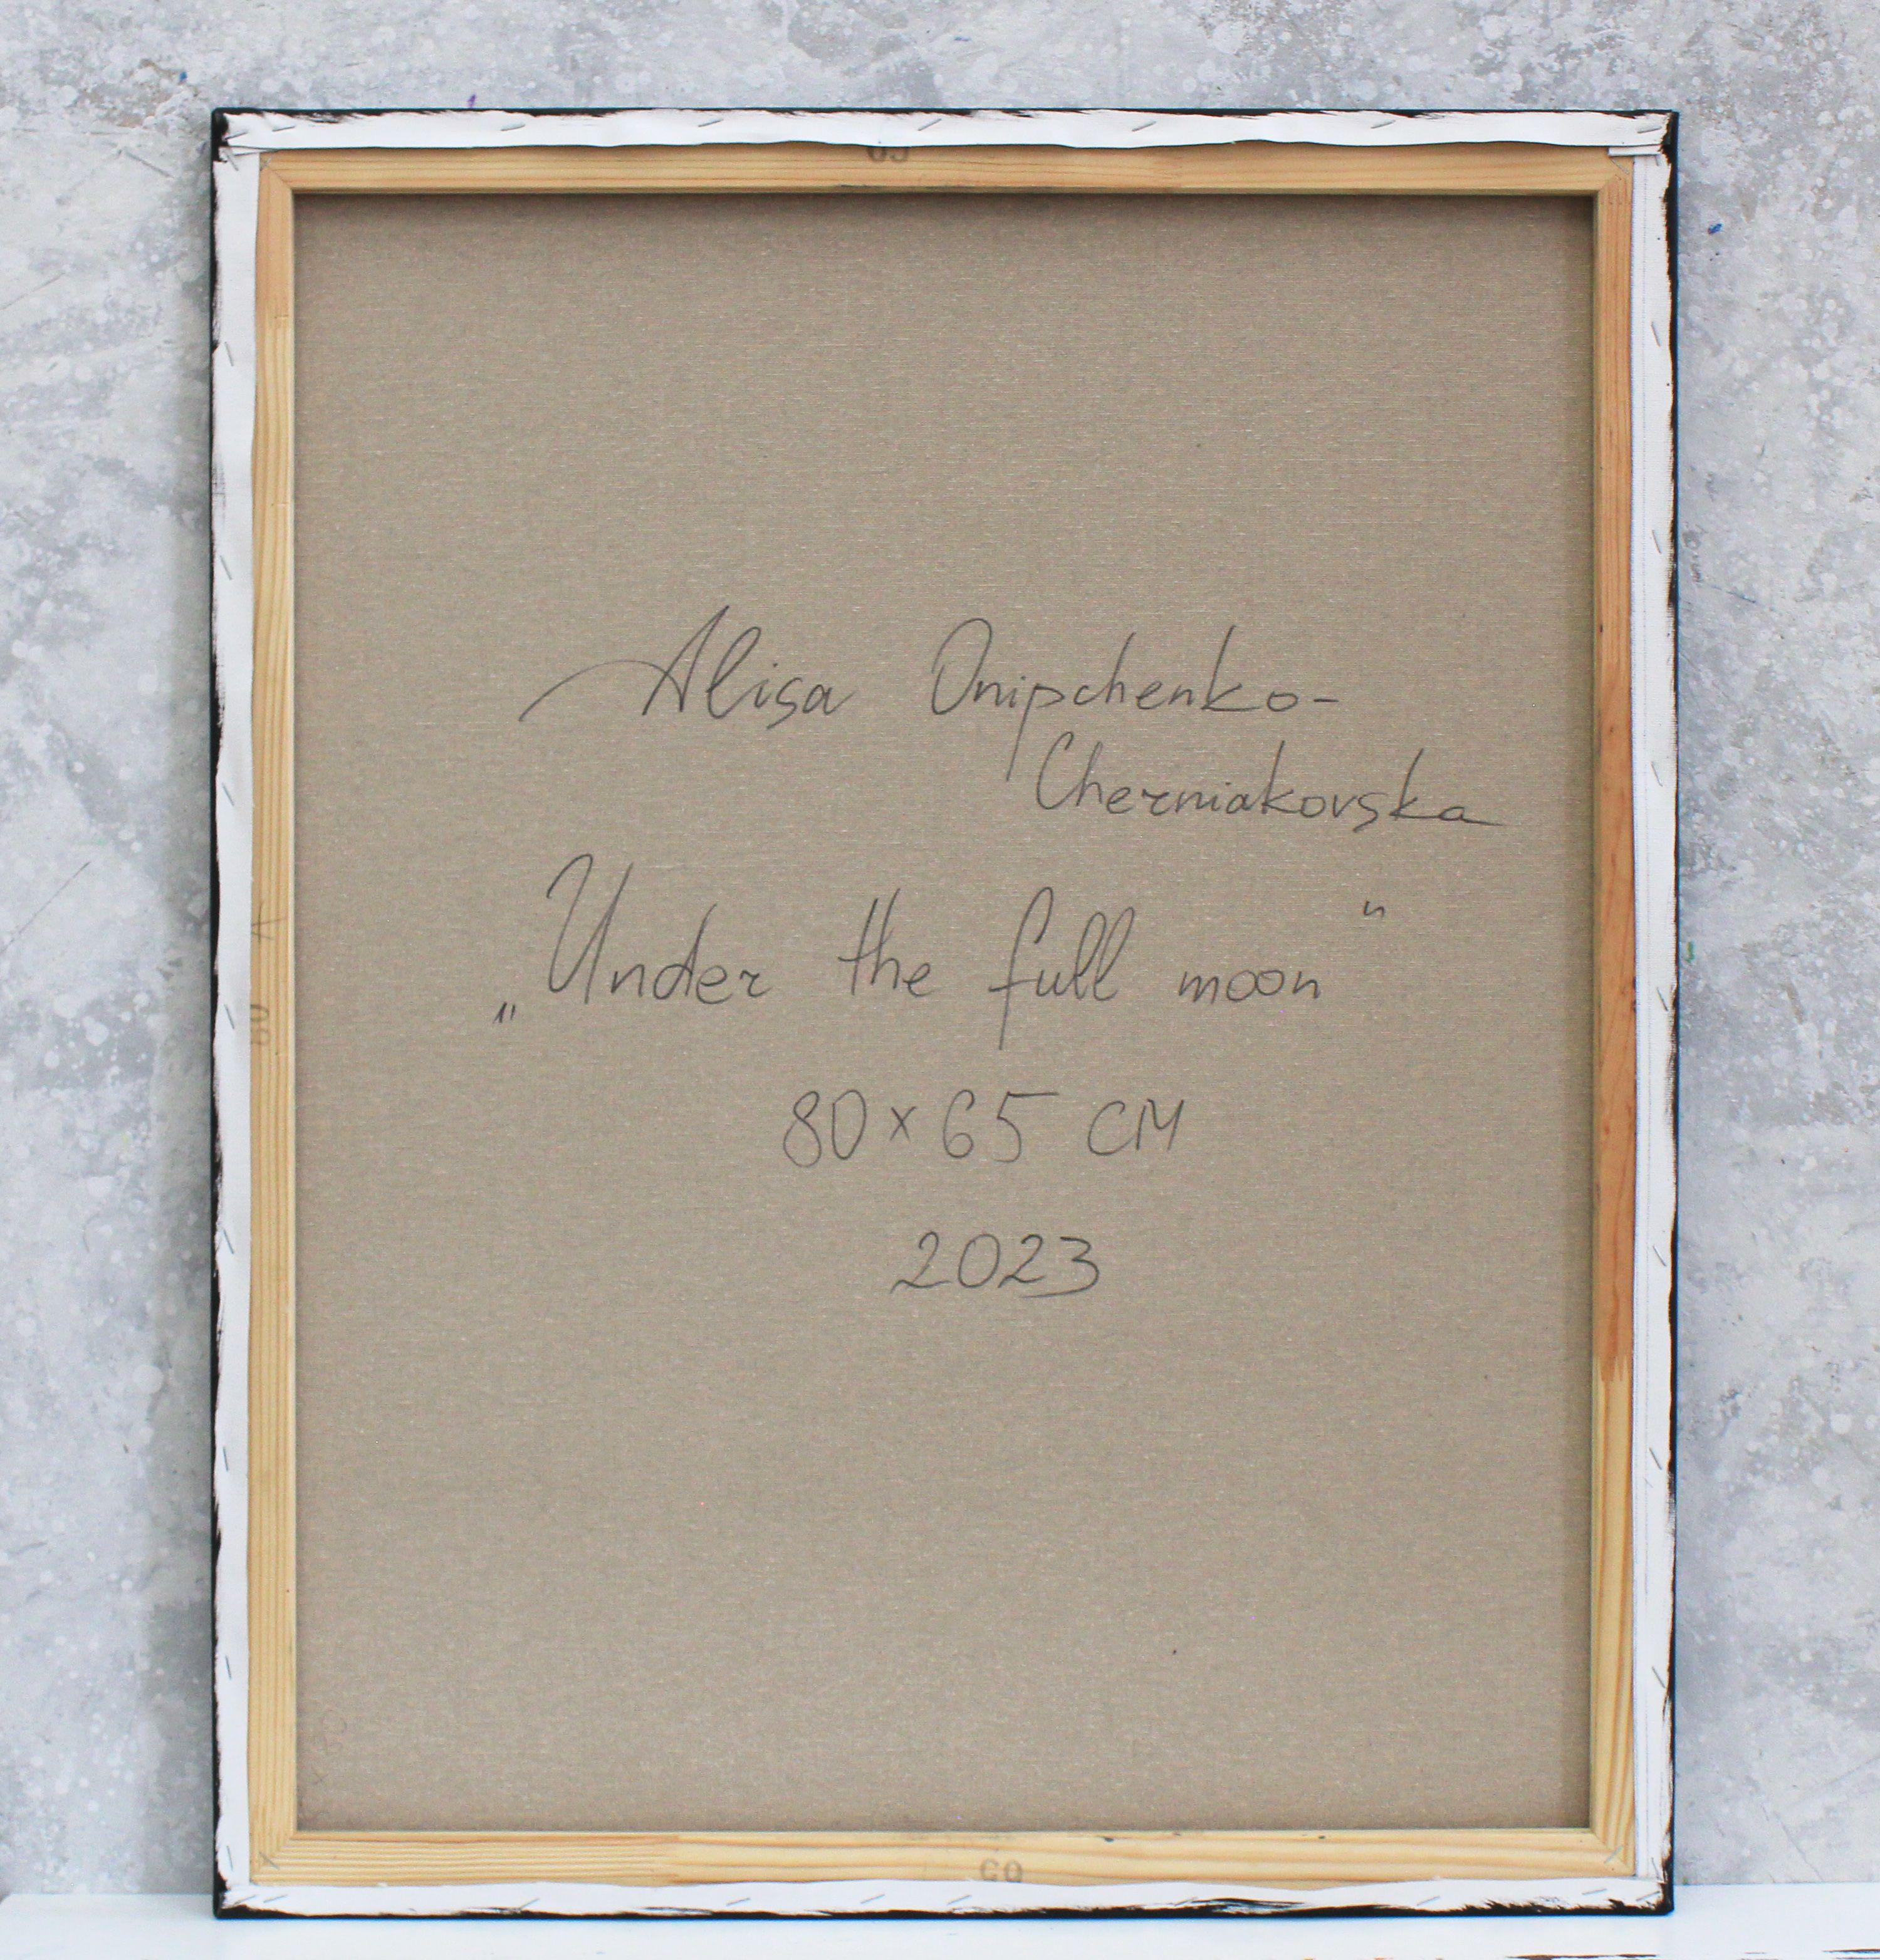 Alisa Onipchenko-
Cherniakovska
„Under the full moon"
80 x 65 CM
2023